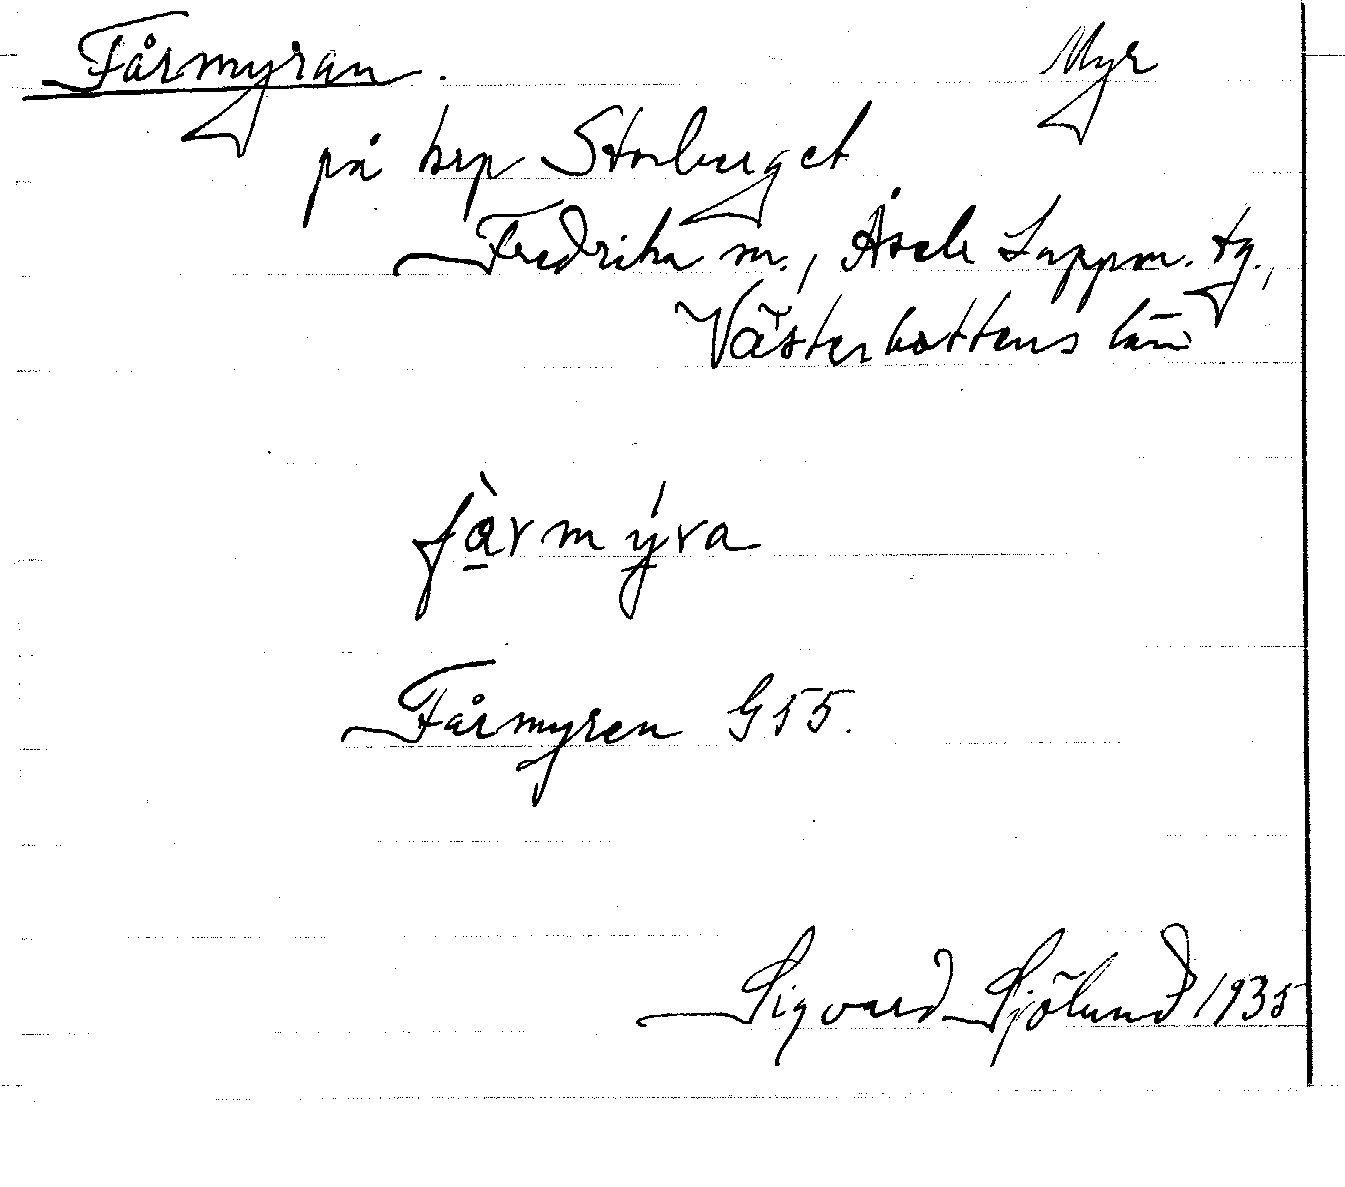 Fårmyran. Myr
på krp Storberget
Fredrika sn., Åsele Lappm. tg.,
Västerbottens län
fàrmýra
Fårmyren G55.
Sigvard Sjölund 1935